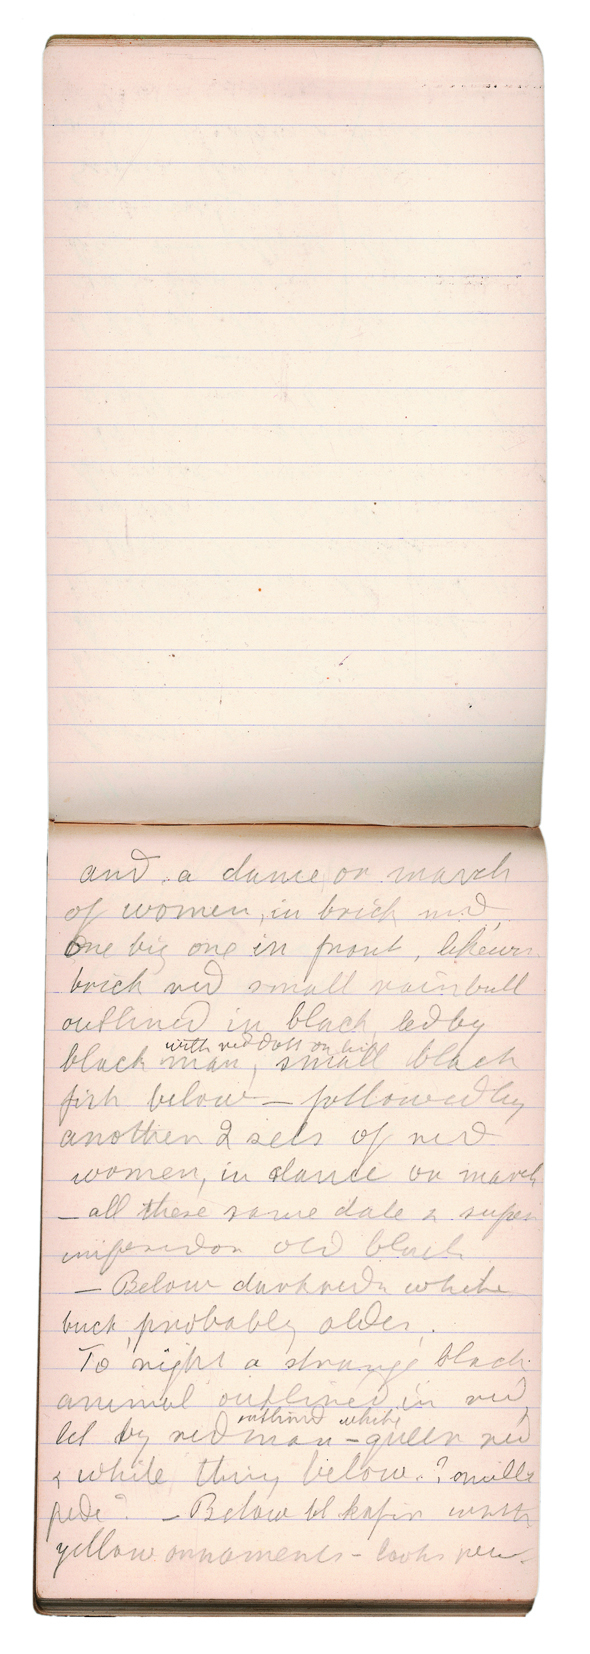 and a dance or march
of women, in brick red,
One big one in front, likewise
brick red small rainbull
outlined in black, led by
with red dots on him
black man, small black
fish below – followed by
another 2 sets of red
women, in dance or march
– all these same date & super
imposed on old black
– Below dark red & white
buck, probably older.
To right a strange black
animal outlined in red,
outlined white
led by red man – queer red
& white thing below. ?
pede? – Below bl kafir with
yellow ornaments – looks new.